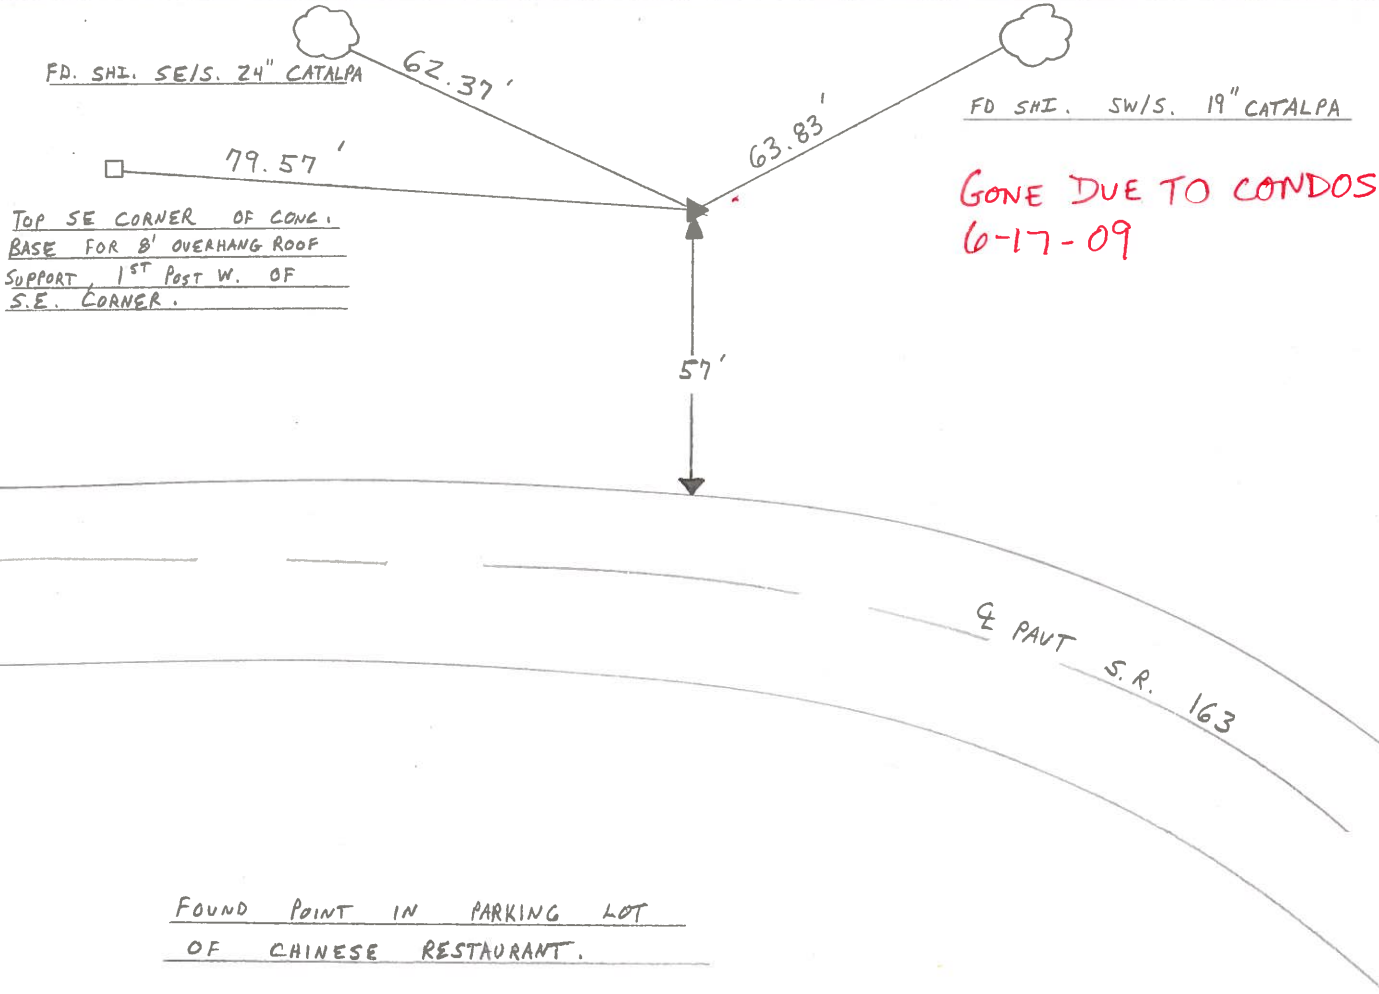 FD. SHI. SE/S. 24" CATALPA
62.37'
63.83'
FD SHI. SW/S. 19" CATALPA
79.57'
GONE DUE TO CONDOS
6-17-09
TOP SE CORNER OF CONC.
BASE FOR 8' OVERHANG ROOF
SUPPORT, 1ST POST W. OF
S.E. CORNER.
57'
℄ PAVT S.R. 163
FOUND POINT IN PARKING LOT
OF CHINESE RESTAURANT.